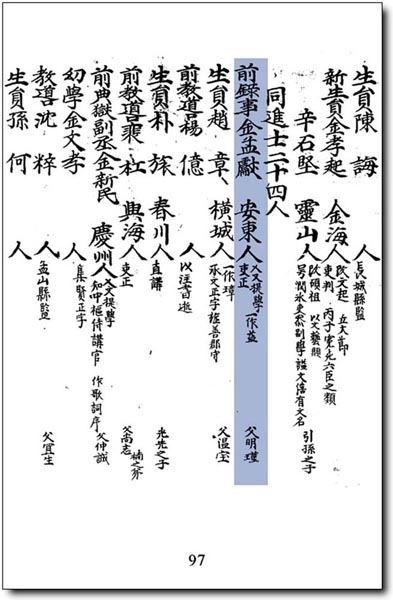 生員陳 誨 人 長城縣監
新生員金孝起 金海人 改文起 立大節 吏判 丙子寃死六臣之類
辛石堅 靈山人 改碩祖 以文藝顯 引孫之子
同進士二十四人
前錄事金孟獻 安東人 提學 一作益 吏正 父明瑾
生員趙 章 橫城人 一作璋 承文正字 善郡守 父溫宝
前教導楊 億 人 以注書
生員朴 春川人 直講 光先之子
前教導裵 杠 興海人 吏正 父尚志 楠之弟
前典獄副丞金新民 慶州人 提學 知中樞侍講官 作歌詞序 父仲誠
幼學金文孝 人 集賢正字
教導沈 粹 人 孟山縣監 父宜生
生員孫 何 人
97